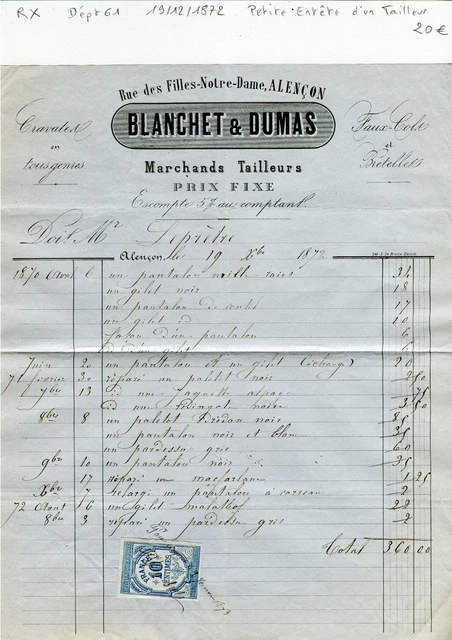 RX Dépt 61 19/12/1872 Petite Entête d'un Tailleur
20€
Rue des Filles-Notre-Dame, ALENÇON
BLANCHET & DUMAS
Cravates
en
tous genres
Faux-Cols
et
Bretelles
Marchands Tailleurs
PRIX FIXE
Escompte 5% au comptant
Doit Mr Leprêtre
Alençon, le 19 Xbre 1872
1870 Aout 6 un pantalon mille raies 34
un gilet noir 18
un pantalon de 17
un gilet id 10
façon d'un pantalon 6
id d'un gilet
Juin 20 un pantalon et un gilet 20
71 30 réparé un paletot noir 2 50
7bre 13 id une jaquette alpaga 75
id une noire 3 50
8bre 8 un paletot noir 85
un pantalon noir et blanc 35
un pardessus gris 60
9bre 10 un pantalon noir 35
17 réparé un macfarlane 1 25
Xbre 7 relargi un pantalon à carreau 2
72 Aout 16 un gilet 22
8bre 3 réparé un pardessus gris 2
Total 360 00
10
CENTIMES